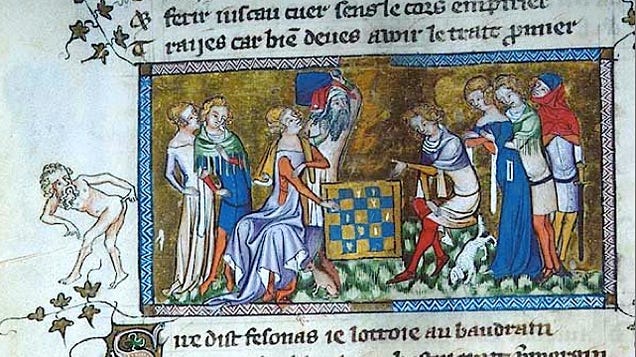 A ferir iuscau cuer sens le cors empirier
T raiies car biẽ deues auoir le trait p̃mier
Sire dist fesonas ie lottroie au baudrain